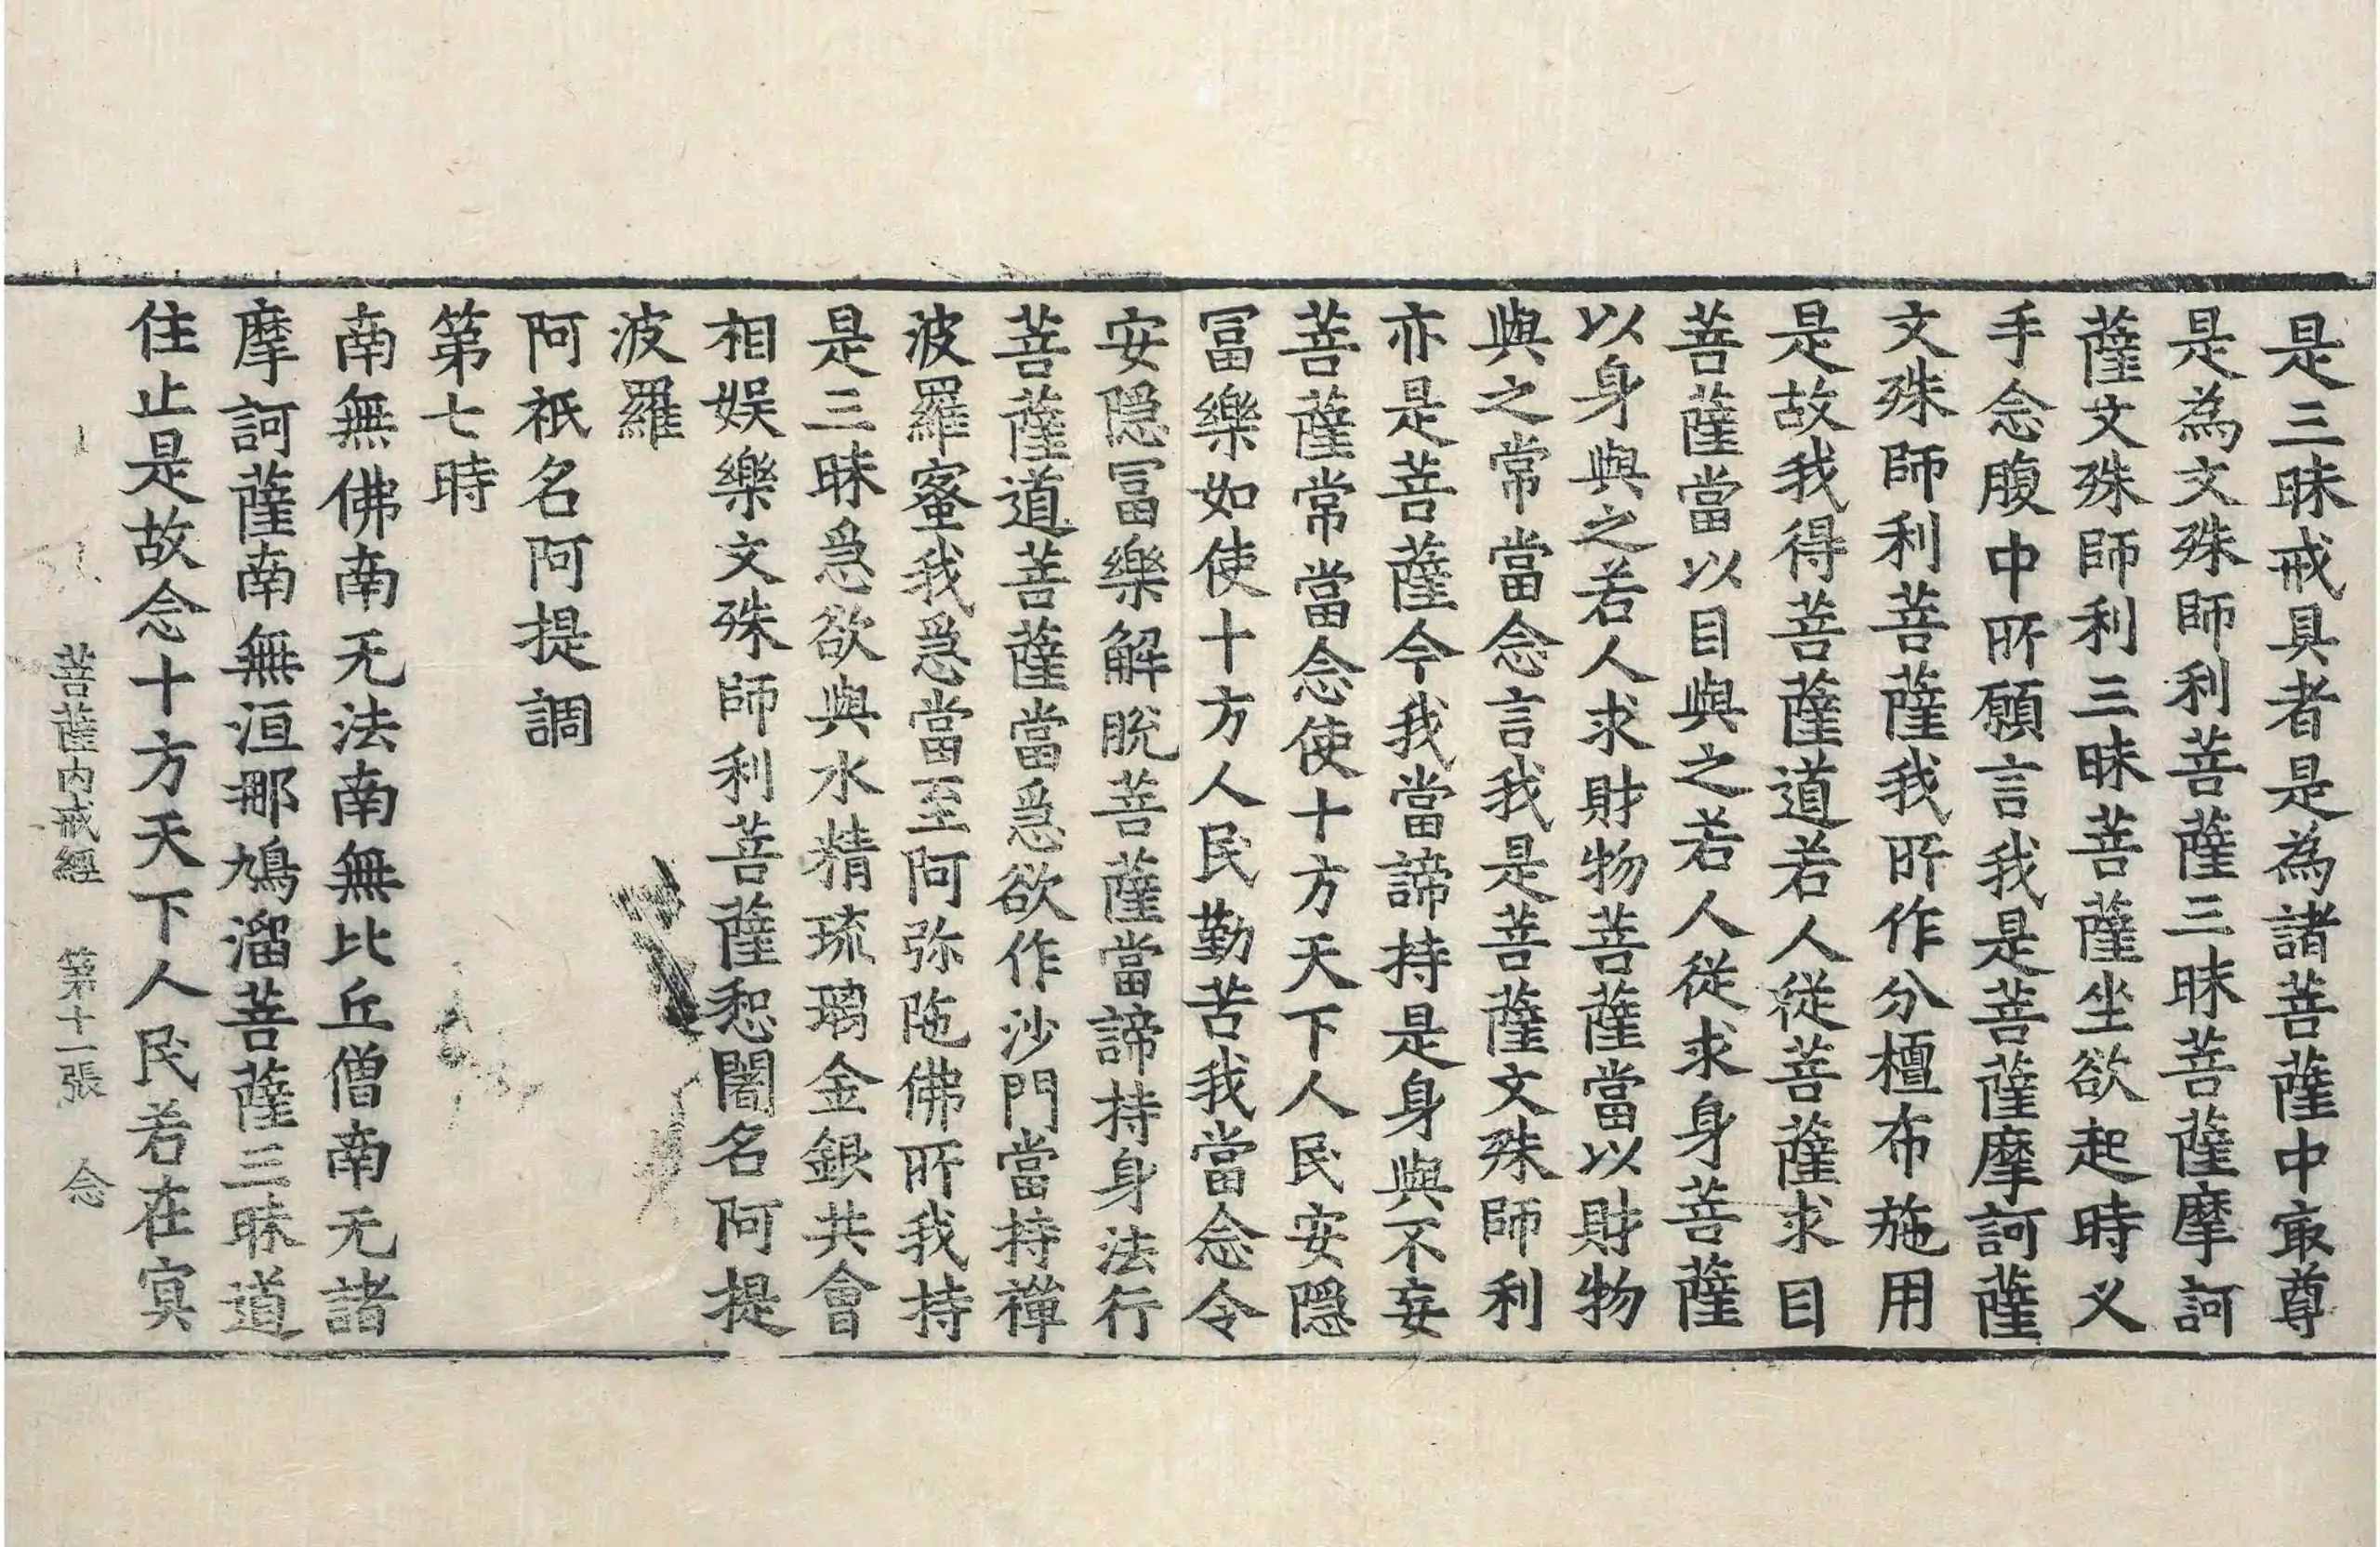 是三昧戒具者是為諸菩薩中㝡尊
是為文殊師利菩薩三昧菩薩摩訶
薩文殊師利三昧菩薩坐欲起時义
手念腹中所願言我是菩薩摩訶薩
文殊師利菩薩我所作分檀布施用
是故我得菩薩道若人從菩薩求目
菩薩當以目與之若人從求身菩薩
以身與之若人求財物菩薩當以財物
與之常當念言我是菩薩文殊師利
亦是菩薩今我當諦持是身與不妄
菩薩常當念使十方天下人民安隠
冨樂如使十方人民勤苦我當念令
安隠冨樂解脫菩薩當諦持身法行
菩薩道菩薩當爲欲作沙門當持禪
波羅蜜我爲當至阿弥陁佛所我持
是三昧爲欲與水精琉璃金銀共會
相娱樂文殊師利菩薩惒闍名阿提
波羅
阿祇名阿提調
第七時
南無佛南无法南無比丘僧南无諸
摩訶薩南無洹那鳩溜菩薩三昧道
住止是故念十方天下人民若在寘
菩薩内戒經 第十一張 念